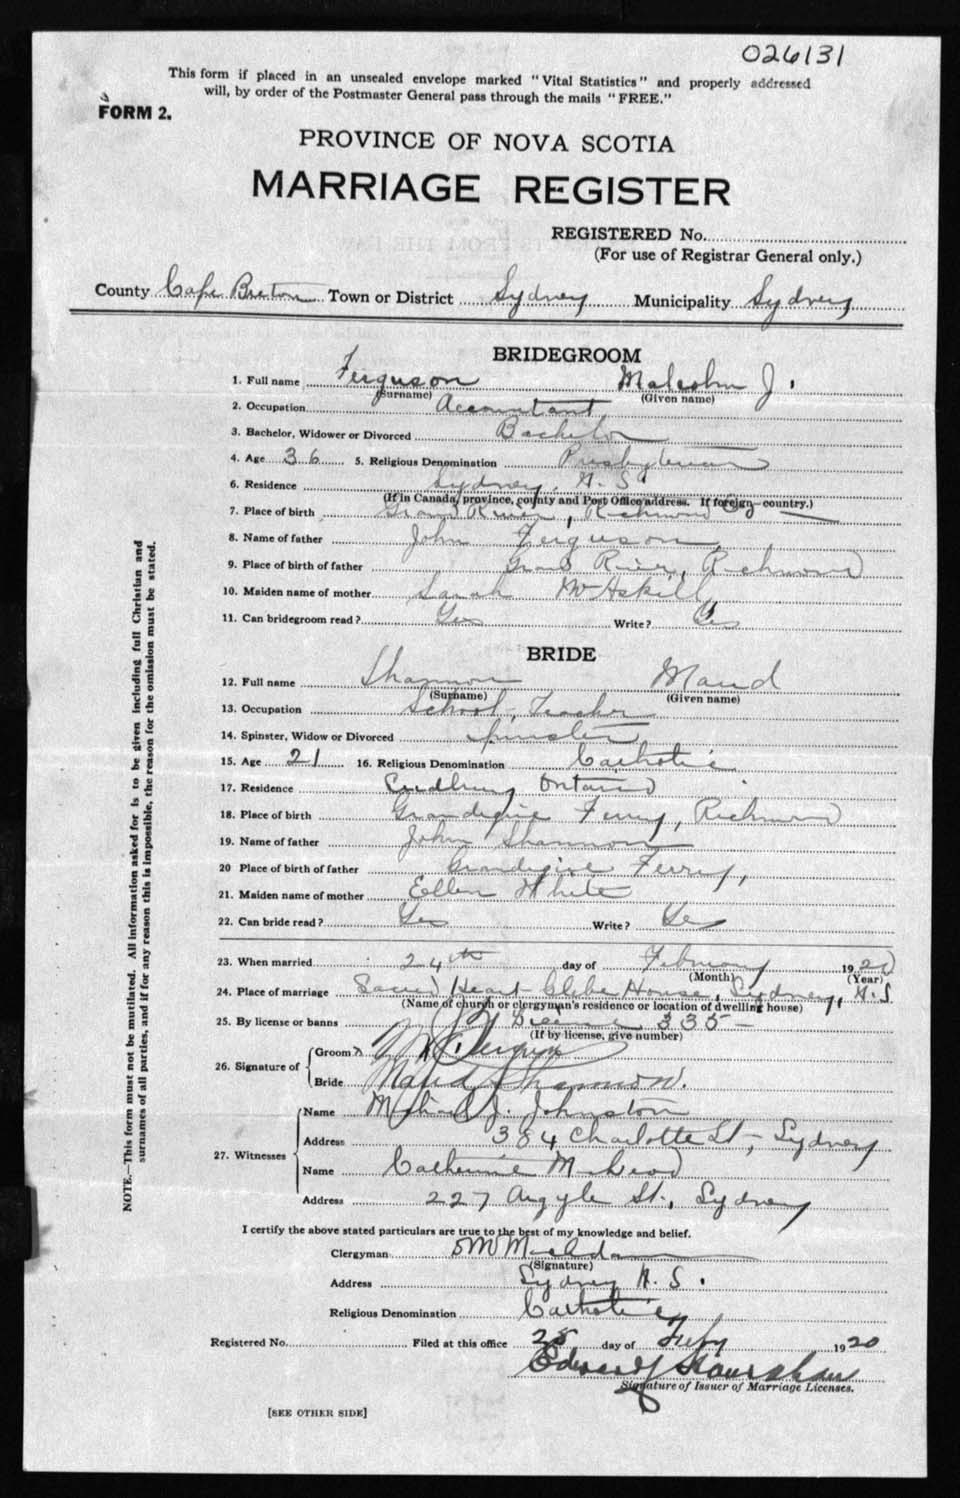 026131
This form if placed in an unsealed envelope marked "Vital Statistics" and properly addressed
will, by order of the Postmaster General pass through the mails "FREE."
FORM 2.
PROVINCE OF NOVA SCOTIA
MARRIAGE REGISTER
REGISTERED No.
(For use of Registrar General only.)
County Cape Breton Town or District Sydney Municipality Sydney
BRIDEGROOM
1. Full name Ferguson Malcolm J.
(Surname) (Given name)
2. Occupation Accountant
3. Bachelor, Widower or Divorced Bachelor
4. Age 36 5. Religious Denomination Presbyterian
6. Residence Sydney, N.S.
(If in Canada, province, county and Post Office address. If foreign country.)
7. Place of birth Grand River, Richmond Co
8. Name of father John Ferguson
9. Place of birth of father Grand River, Richmond
10. Maiden name of mother Sarah McAskill
11. Can bridegroom read? Yes Write? Yes
BRIDE
12. Full name Shannon Maud
(Surname) (Given name)
13. Occupation School Teacher
14. Spinster, Widow or Divorced Spinster
15. Age 21 16. Religious Denomination Catholic
17. Residence Sudbury Ontario
18. Place of birth Grandique Ferry, Richmond
19. Name of father John Shannon
20 Place of birth of father Grandique Ferry,
21. Maiden name of mother Ellen White
22. Can bride read? Yes Write? Yes
23. When married 24th day of February 1920
(Month) (Year)
24. Place of marriage Sacred Heart Glebe House, Sydney, N.S.
(Name of church or clergyman's residence or location of dwelling house)
25. By license or banns License 335
(If by license, give number)
26. Signature of
Groom M J Ferguson
Bride Maud Shannon.
27. Witnesses
Name Michael J. Johnston
Address 384 Charlotte St, Sydney
Name Catherine McLeod
Address 227 Argyle St., Sydney
I certify the above stated particulars are true to the best of my knowledge and belief.
Clergyman
(Signature)
Address Sydney N.S.
Religious Denomination Catholic
Registered No. Filed at this office 28 day of Feby 1920
Edward
Signature of Issuer of Marriage Licenses.
[SEE OTHER SIDE]
NOTE.—This form must not be mutilated. All information asked for is to be given including full Christian and
surnames of all parties, and if for any reason this is impossible, the reason for the omission must be stated.